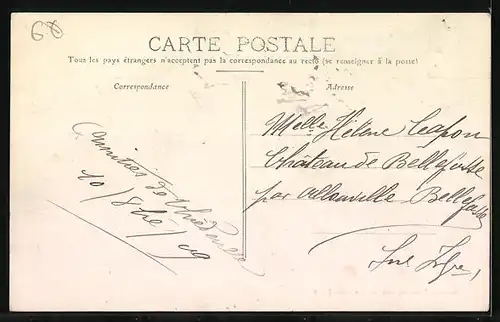 60
CARTE POSTALE
Tous les pays étrangers n'acceptent pas la correspondance au recto (se renseigner à la poste)
Correspondance
Amitiés de
10/8bre/09
Adresse
Melle Hélène
Château de Bellefosse
par Allouville Bellefosse
Sne Infre